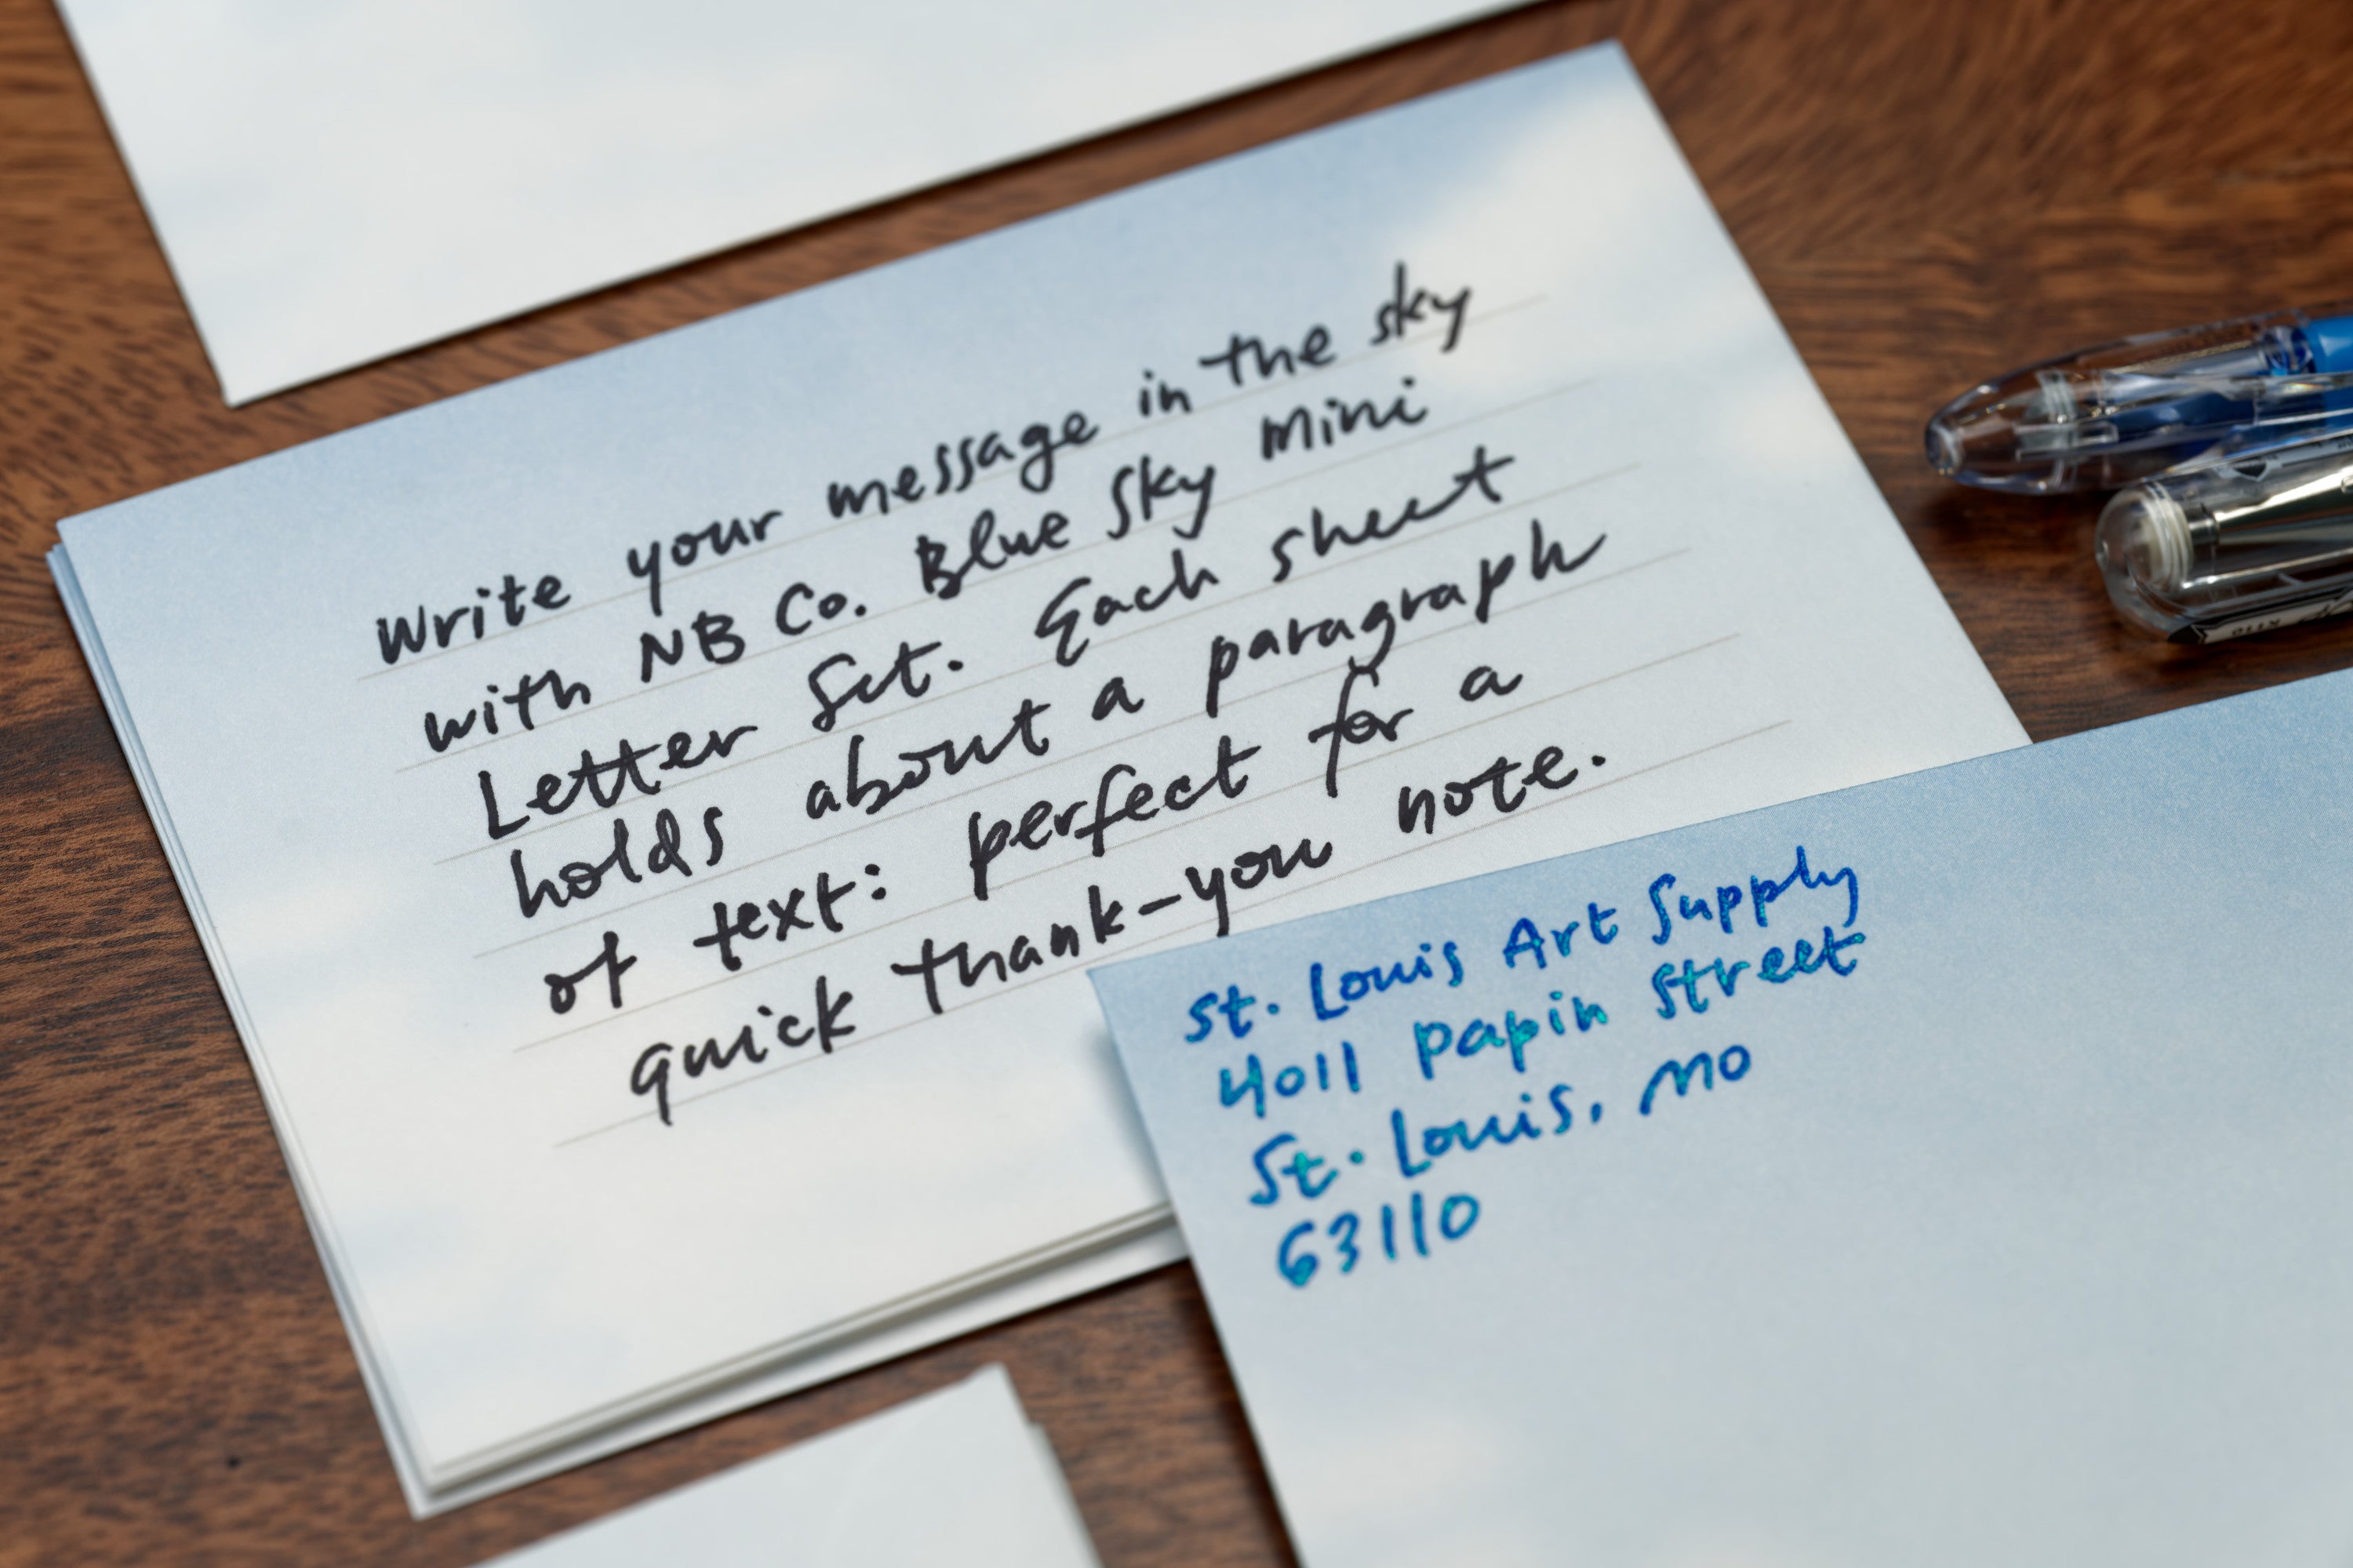 Write your message in the sky
with NB Co. Blue Sky Mini
Letter Set. Each sheet
holds about a paragraph
of text: perfect for a
quick thank-you note.
St. Louis Art Supply
4011 Papin Street
St. Louis, MO
63110